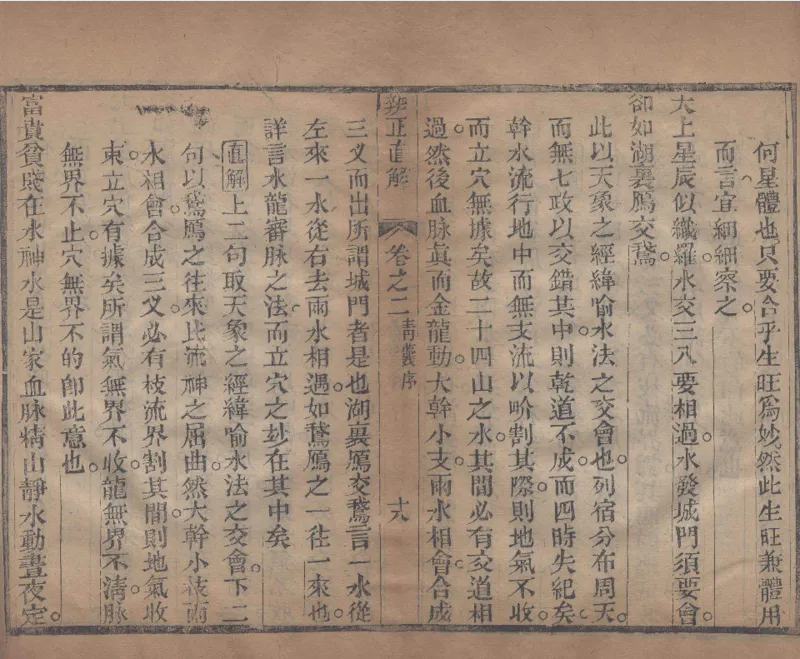 何星體也只要合乎生旺爲妙然此生旺兼體用
而言宜細細察之
天上星辰似織羅水交三八要相過水發城門須要會
卻如湖裏鴈交鵞
此以天象之經緯喻水法之交會也列宿分布周天
而無七政以交錯其中則乾道不成而四時失紀矣
幹水流行地中而無支流以畍割其際則地氣不收
而立穴無據矣故二十四山之水其間必有交道相
過然後血脉眞而金龍動大幹小支兩水相會合成
辨正直解 卷之二 青囊序
三叉而出所謂城門者是也湖裏鴈交鵞言一水從
左來一水從右去兩水相遇如鵞鴈之一往一來也
詳言水龍審脉之法而立穴之玅在其中矣
直解上二句取天象之經緯喻水法之交會下二
句以鵞鴈之往來比流神之屈曲然大幹小枝兩
水相會合成三叉必有枝流界割其間則地氣收
束立穴有據矣所謂氣無界不收龍無界不清脉
無界不止穴無界不的卽此意也
富貴貧賤在水神水是山家血脉精山靜水動晝夜定